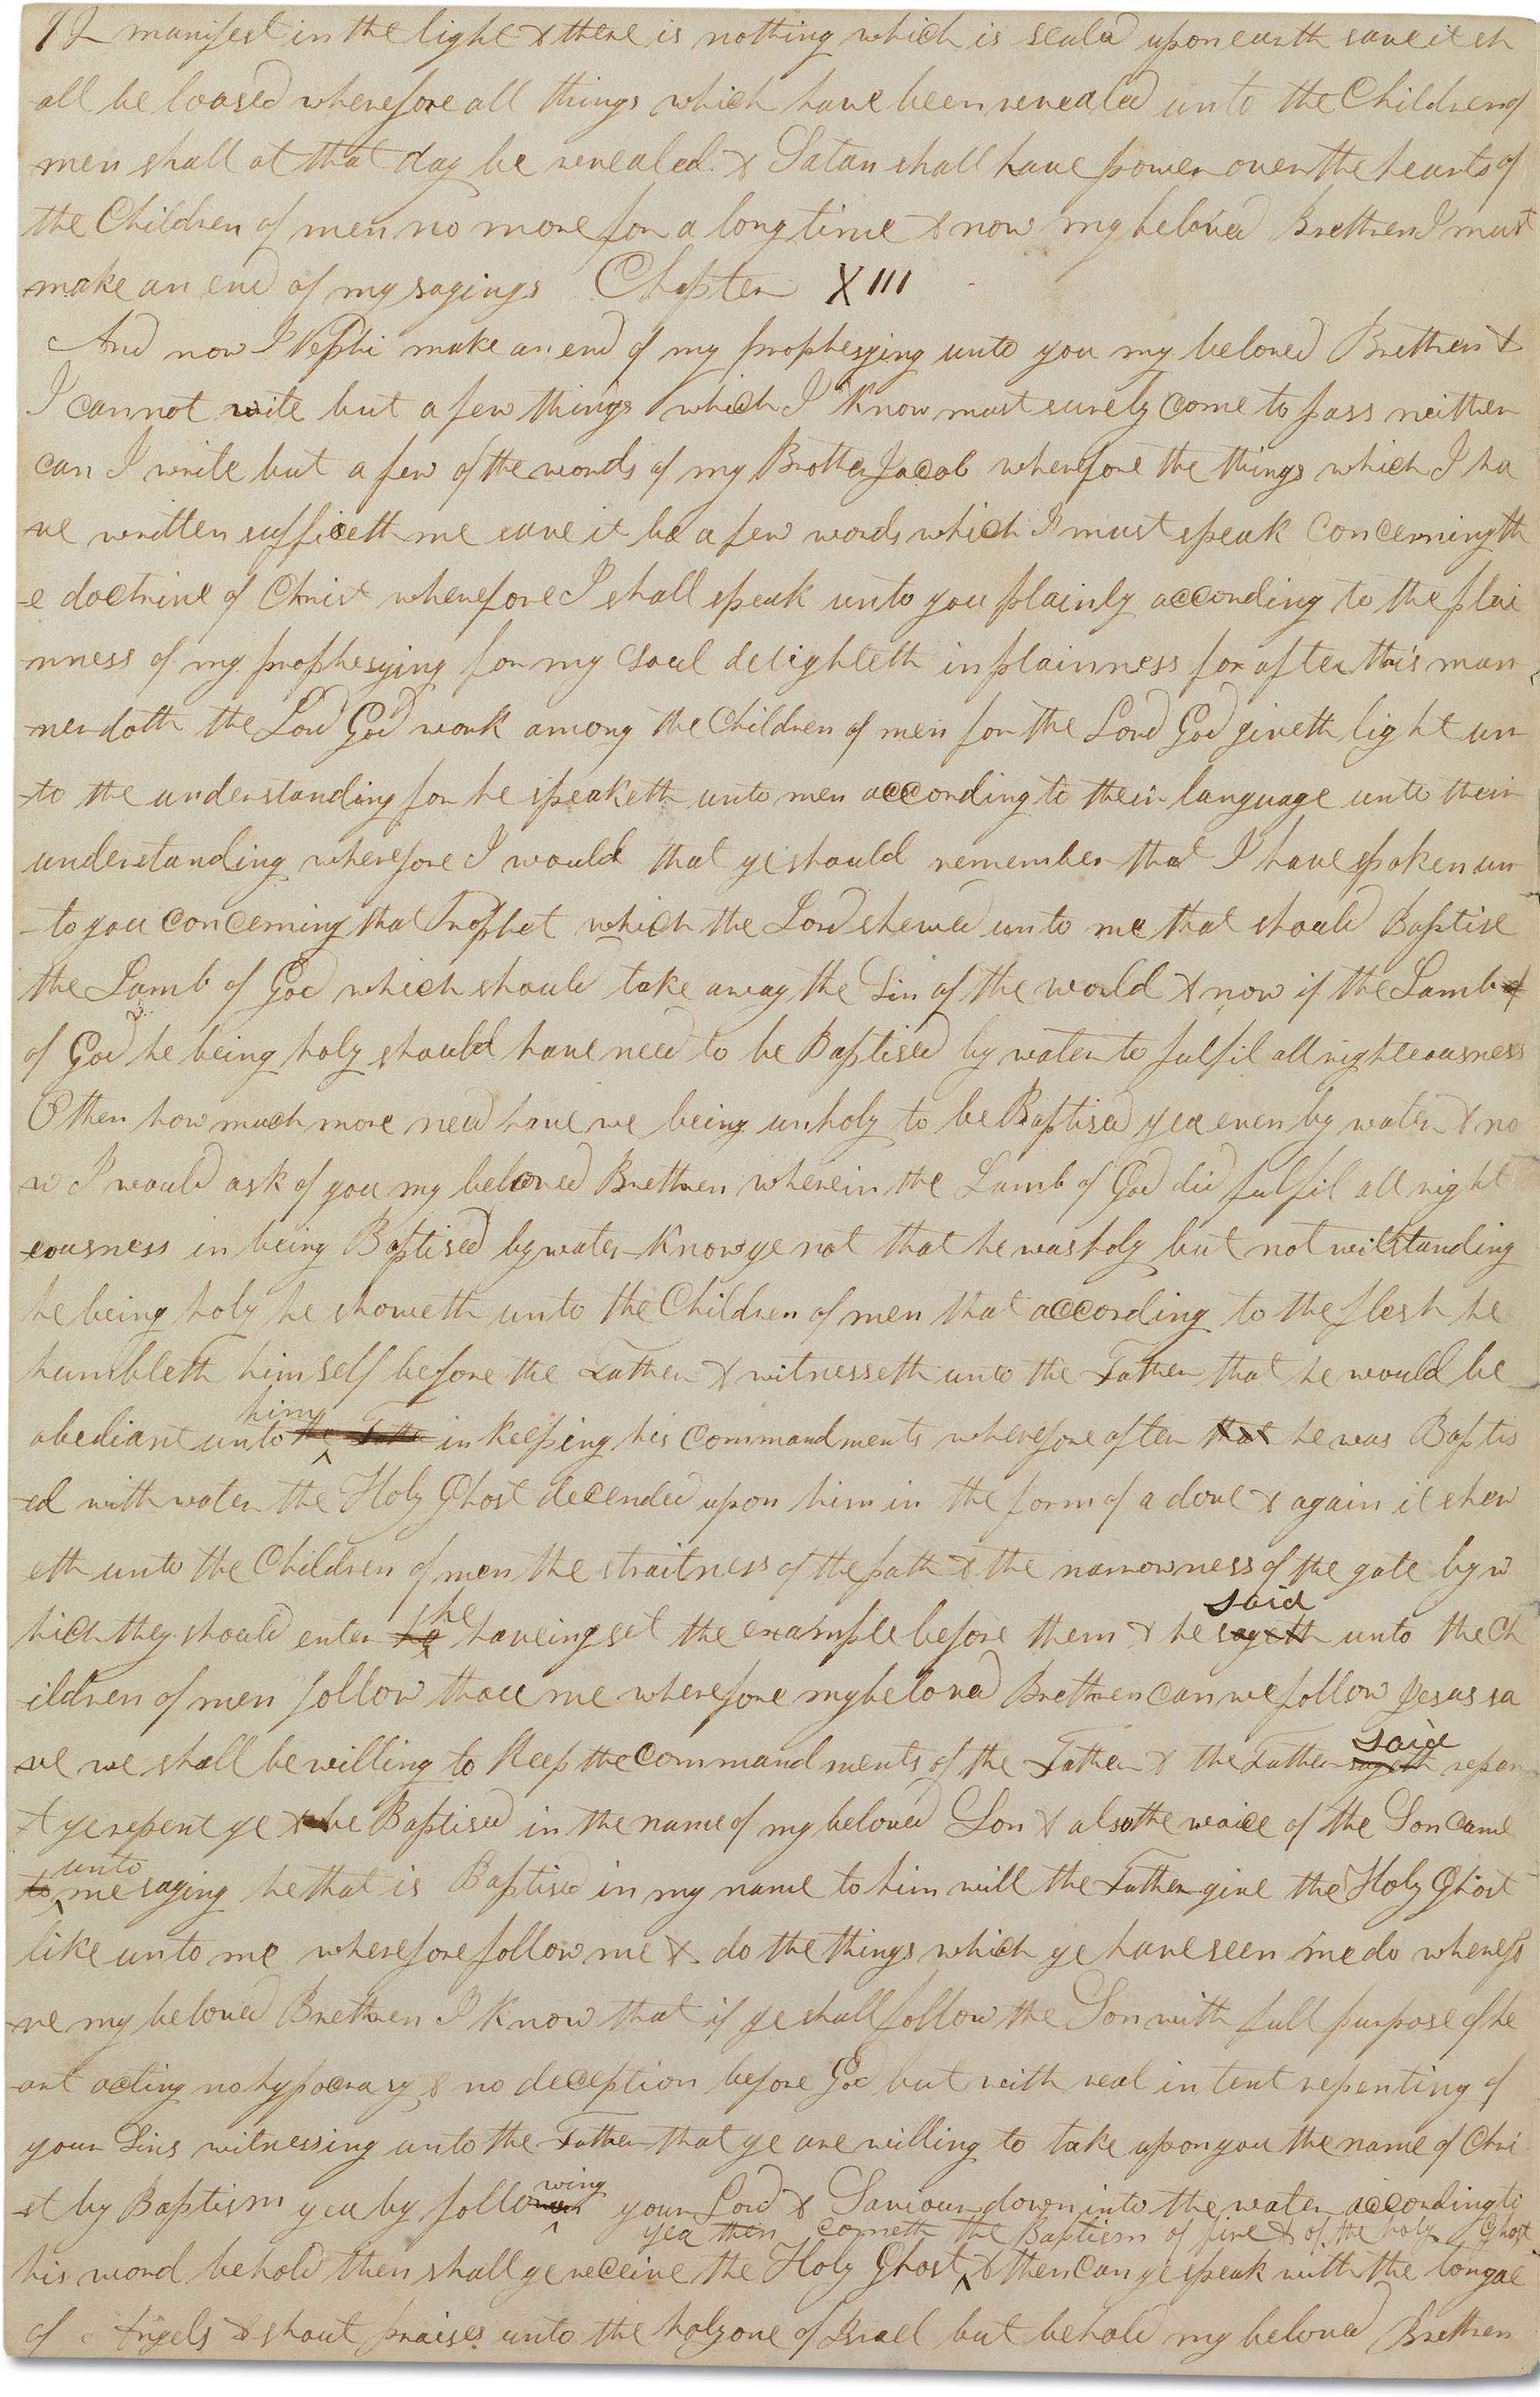 92 manifest in the light & there is nothing which is seald upon earth save it sh
all be loosed wherefore all things which have been revealed unto the Children of
men shall at that day be revealed & Satan shall have power over the hearts of
the Children of men no more for a long time & now my beloved Brethren I must
make an end of my sayings Chapter XIII
And now I Nephi make an end of my prophesying unto you my beloved Brethren &
I cannot write but a few things which I know must surely come to pass neither
can I write but a few of the words of my Brother Jacob wherefore the things which I ha
-ve written sufficeth me save it be a few words which I must speak concerning th
-e doctrine of Christ wherefore I shall speak unto you plainly according to the plai
-nness of my prophesying for my soul delighteth in plainness for after this man
-ner doth the Lord God work among the Children of men for the Lord God giveth light un
-to the understanding for he speaketh unto men according to their language unto their
understanding wherefore I would that ye should remember that I have spoken un
-to you concerning that Prophet which the Lord shewed unto me that should Baptise
the Lamb of God which should take away the Sin of the world & now if the Lamb of
of God he being holy should have need to be Baptised by water to fulfil all righteousness
O then how much more need have we being unholy to be Baptised yea even by water & no
w I would ask of you my beloved Brethren wherein the Lamb of God did fulfil all right
eousness in being Baptised by water Know ye not that he was holy but not withstanding
he being holy he showeth unto the Children of men that according to the flesh he
humbleth himself before the Father & witnesseth unto the Father that he would be
him
obediant unto the Father in keeping his commandments wherefore after that he was Baptis
-ed with water the Holy Ghost decended upon him in the form of a dove & again it shew
eth unto the Children of men the straitness of the path & the narrowness of the gate by w
he said
hich they should enter he haveing set the example before them & he sayeth unto the Ch
-ildren of men follow thou me wherefore my beloved Brethren can we follow Jesus sa
said
-ve we shall be willing to keep the commandments of the Father & the Father sayeth repen
-t ye repent ye & be Baptised in the name of my beloved Son & also the voice of the Son came
unto
to me saying he that is Baptised in my name to him will the Father give the Holy Ghost
like unto me wherefore follow me & do the things which ye have seen me do wherefo
-re my beloved Brethren I know that if ye shall follow the Son with full purpose of he
-art acting no hypocrasy & no deception before God but with real intent repenting of
your Sins witnessing unto the Father that ye are willing to take upon you the name of Chri
wing
-st by Baptism yea by follo your Lord & Saviour down into the water according to
yea then cometh the Baptism of fire & of the holy Ghost
his word behold then shall ye receive the Holy Ghost & then can ye speak with the tongue
of Angels & shout praises unto the holy one of Israel but behold my beloved Brethren